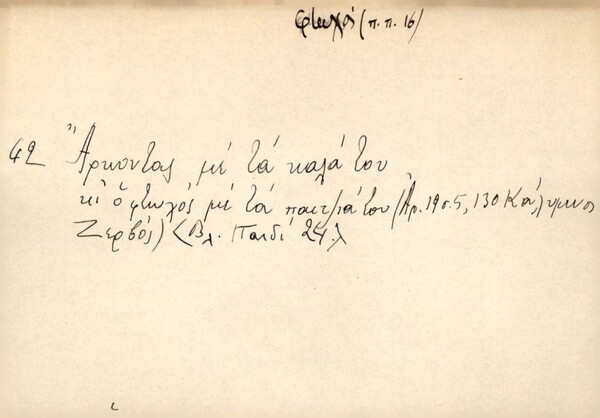 φτωχός (π.π. 16)
42 Ἄρκοντας μέ τά καλά του
κι ὁ φτωχός μέ τά παιδιά του (Ἀρ. 19 σ. 5, 130 Κάλυμνος
Ζερβός) < Βλ. Παιδί 24 >